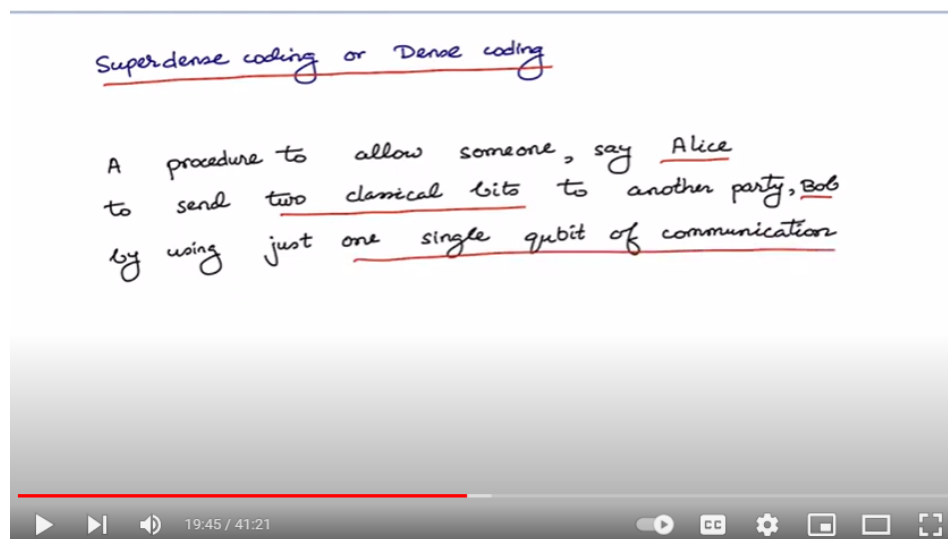 Superdense coding or Dense coding
A procedure to allow someone, say Alice
to send two classical bits to another party, Bob
by using just one single qubit of communication
19:45 / 41:21
CC